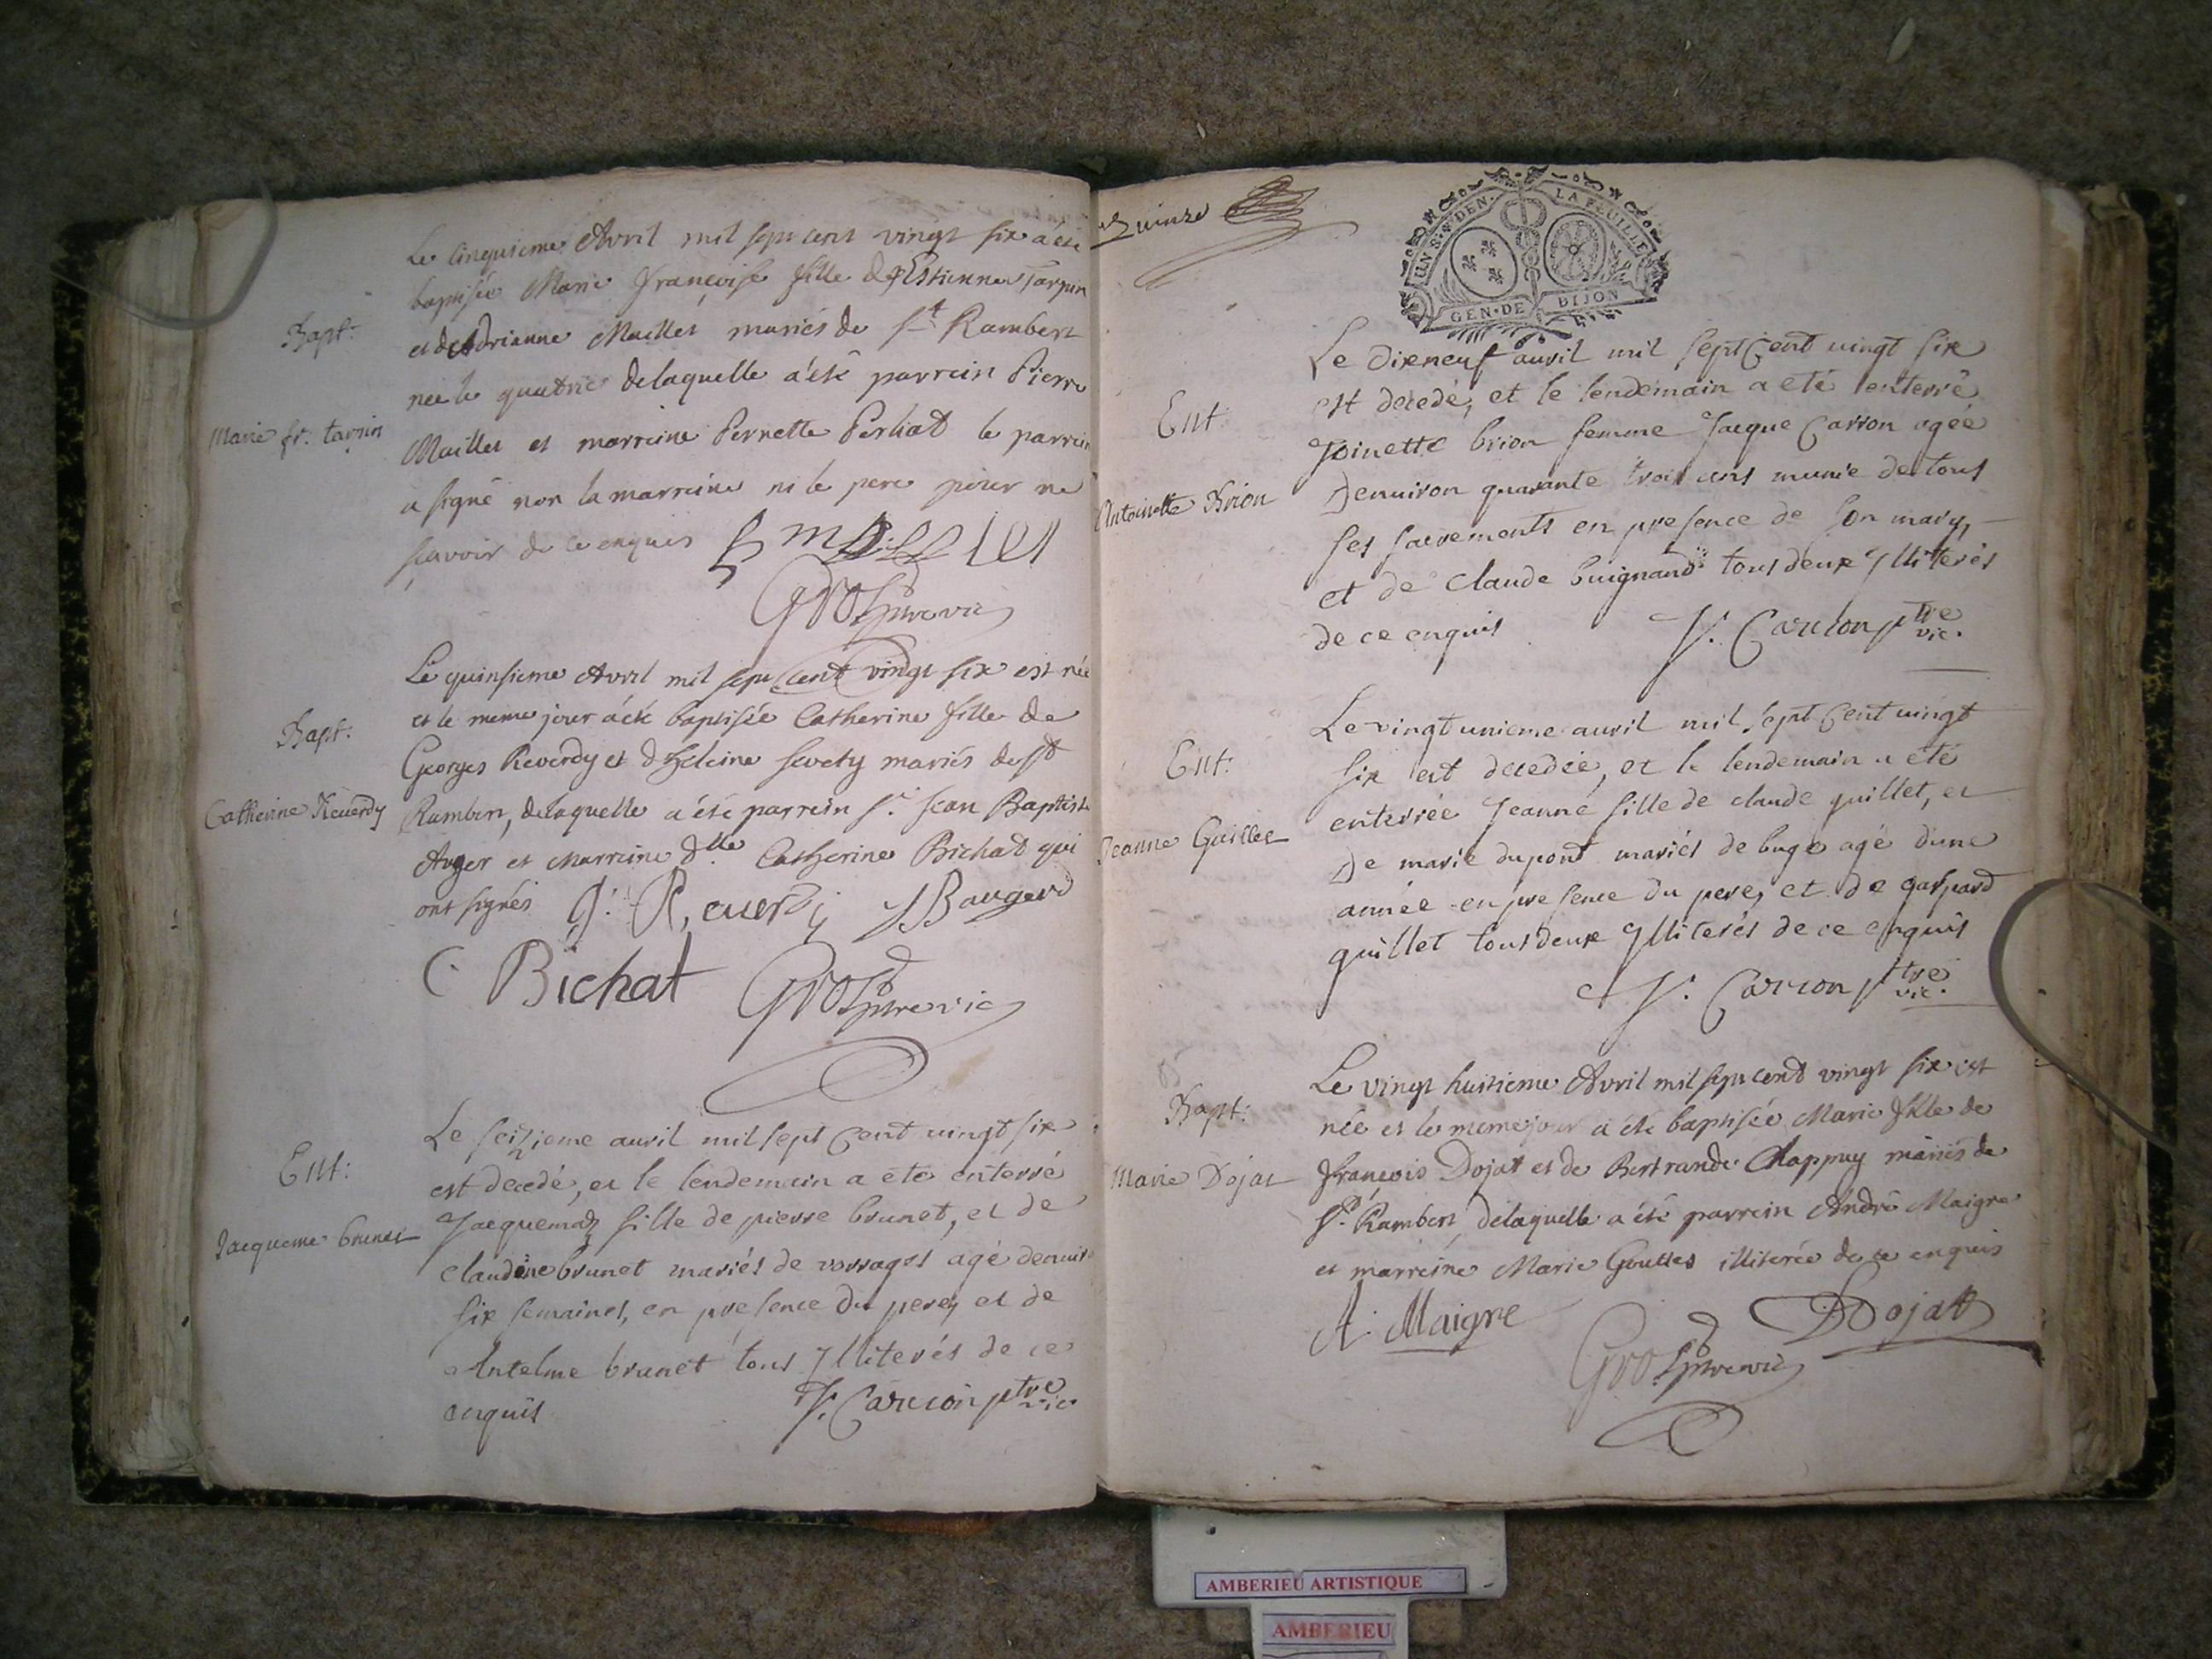 Le cinquieme Avril mil sept cent vingt six a été
baptisée Marie Françoise fille d'Estienne Tarpin
et d'Adrianne Maillet mariés de St Rambert
née le quatre de laquelle a été parrein Pierre
Maillet et marreine Pernette Perliat le parrein
a signé non la marreine ni le pere pour ne
sçavoir de ce enquis
Gros ptre vic
Bapt:
Marie fr. tarpin
Le quinsieme Avril mil sept cent vingt six est née
et le meme jour a été baptisée Catherine fille de
Georges Reverdy et d'heleine Sevety mariés de St
Rambert, de laquelle a été parrein Sr. Jean Baptiste
Auger et marreine dlle Catherine Bichat qui
ont signés G. Reuerdy JBauger
C Bichat Gros ptre vic
Bapt:
Catherine Reuerdy
Le seizieme auril mil sept cent uingt six
est decedé, et le lendemain a ete enterré
Jacquema fille de pierre brunet, et de
claudine brunet mariés de vorrages agé denuiron
six semaines, en presence du pere, et de
Antelme brunet tous ylliterés de ce
enquis Carrion ptre vic
Ent:
Jacqueme brunet
quinze
EUN S. 4 DEN. LA FEUILLE
GEN. DE DIJON
Le dixneuf auril mil sept cent uingt six
est decedé, et le lendemain a eté enterré
Toinette brion femme Jacque Carron agée
denuiron quarante trois ans munie de tous
ses sacrements en presence de son mary,
et de claude buignand tous deux ylliterés
de ce enquis Carrion ptre vic.
Ent:
Antoinette Brion
Le vingt unieme auril mil sept cent uingt
six est decedée, et le lendemain a eté
enterrée Jeanne fille de claude quillet, et
de marie dupont mariés de buge agé dune
année en presence du pere, et de gaspard
quillet tous deux ylliterés de ce enquis
Carrion ptre vic.
Ent:
Jeanne Guillet
Le vingt huitieme Avril mil sept cent vingt six est
née et le meme jour a été baptisée Marie fille de
françois Dojat et de Bertrande Chappuy mariés de
St. Rambert, de laquelle a été parrein André Maigre
et marreine Marie Gouttes illiterée de ce enquis
A. Maigre Dojat
Gros ptre vic
Bapt:
Marie Dojat
AMBERIEU ARTISTIQUE
AMBERIEU